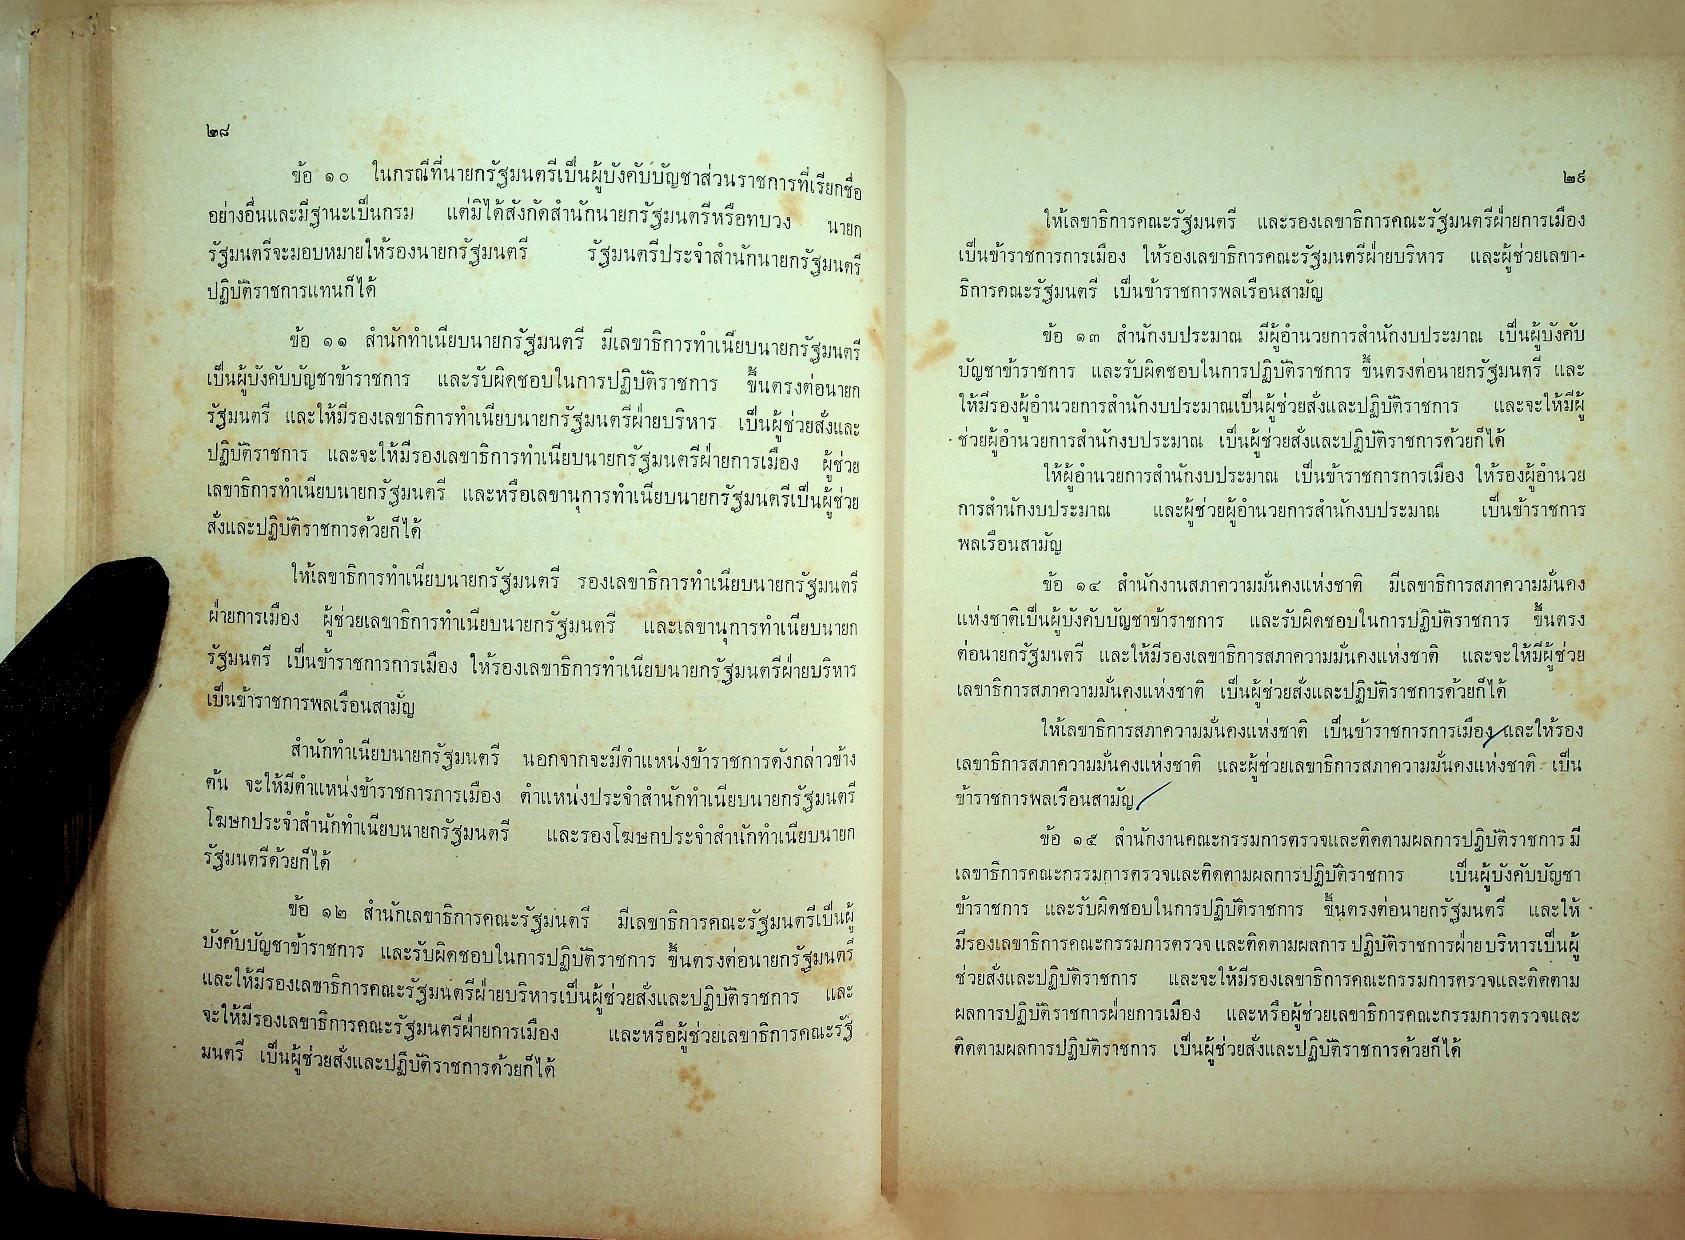 ๒๘
ข้อ ๑๐ ในกรณีที่นายกรัฐมนตรีเป็นผู้บังคับบัญชาส่วนราชการที่เรียกชื่อ
อย่างอื่นและมีฐานะเป็นกรม แต่มิได้สังกัดสำนักนายกรัฐมนตรีหรือทบวง นายก
รัฐมนตรีจะมอบหมายให้รองนายกรัฐมนตรี รัฐมนตรีประจำสำนักนายกรัฐมนตรี
ปฏิบัติราชการแทนก็ได้
ข้อ ๑๑ สำนักทำเนียบนายกรัฐมนตรี มีเลขาธิการทำเนียบนายกรัฐมนตรี
เป็นผู้บังคับบัญชาข้าราชการ และรับผิดชอบในการปฏิบัติราชการ ขึ้นตรงต่อนายก
รัฐมนตรี และให้มีรองเลขาธิการทำเนียบนายกรัฐมนตรีฝ่ายบริหาร เป็นผู้ช่วยสั่งและ
ปฏิบัติราชการ และจะให้มีรองเลขาธิการทำเนียบนายกรัฐมนตรีฝ่ายการเมือง ผู้ช่วย
เลขาธิการทำเนียบนายกรัฐมนตรี และหรือเลขานุการทำเนียบนายกรัฐมนตรีเป็นผู้ช่วย
สั่งและปฏิบัติราชการด้วยก็ได้
ให้เลขาธิการทำเนียบนายกรัฐมนตรี รองเลขาธิการทำเนียบนายกรัฐมนตรี
ฝ่ายการเมือง ผู้ช่วยเลขาธิการทำเนียบนายกรัฐมนตรี และเลขานุการทำเนียบนายก
รัฐมนตรี เป็นข้าราชการการเมือง ให้รองเลขาธิการทำเนียบนายกรัฐมนตรีฝ่ายบริหาร
เป็นข้าราชการพลเรือนสามัญ
สำนักทำเนียบนายกรัฐมนตรี นอกจากจะมีตำแหน่งข้าราชการดังกล่าวข้าง
ต้น จะให้มีตำแหน่งข้าราชการการเมือง ตำแหน่งประจำสำนักทำเนียบนายกรัฐมนตรี
โฆษกประจำสำนักทำเนียบนายกรัฐมนตรี และรองโฆษกประจำสำนักทำเนียบนายก
รัฐมนตรีด้วยก็ได้
ข้อ ๑๒ สำนักเลขาธิการคณะรัฐมนตรี มีเลขาธิการคณะรัฐมนตรีเป็นผู้
บังคับบัญชาข้าราชการ และรับผิดชอบในการปฏิบัติราชการ ขึ้นตรงต่อนายกรัฐมนตรี
และให้มีรองเลขาธิการคณะรัฐมนตรีฝ่ายบริหารเป็นผู้ช่วยสั่งและปฏิบัติราชการ และ
จะให้มีรองเลขาธิการคณะรัฐมนตรีฝ่ายการเมือง และหรือผู้ช่วยเลขาธิการคณะรัฐ
มนตรี เป็นผู้ช่วยสั่งและปฏิบัติราชการด้วยก็ได้
๒๙
ให้เลขาธิการคณะรัฐมนตรี และรองเลขาธิการคณะรัฐมนตรีฝ่ายการเมือง
เป็นข้าราชการการเมือง ให้รองเลขาธิการคณะรัฐมนตรีฝ่ายบริหาร และผู้ช่วยเลขา-
ธิการคณะรัฐมนตรี เป็นข้าราชการพลเรือนสามัญ
ข้อ ๑๓ สำนักงบประมาณ มีผู้อำนวยการสำนักงบประมาณ เป็นผู้บังคับ
บัญชาข้าราชการ และรับผิดชอบในการปฏิบัติราชการ ขึ้นตรงต่อนายกรัฐมนตรี และ
ให้มีรองผู้อำนวยการสำนักงบประมาณเป็นผู้ช่วยสั่งและปฏิบัติราชการ และจะให้มีผู้
ช่วยผู้อำนวยการสำนักงบประมาณ เป็นผู้ช่วยสั่งและปฏิบัติราชการด้วยก็ได้
ให้ผู้อำนวยการสำนักงบประมาณ เป็นข้าราชการการเมือง ให้รองผู้อำนวย
การสำนักงบประมาณ และผู้ช่วยผู้อำนวยการสำนักงบประมาณ เป็นข้าราชการ
พลเรือนสามัญ
ข้อ ๑๔ สำนักงานสภาความมั่นคงแห่งชาติ มีเลขาธิการสภาความมั่นคง
แห่งชาติเป็นผู้บังคับบัญชาข้าราชการ และรับผิดชอบในการปฏิบัติราชการ ขึ้นตรง
ต่อนายกรัฐมนตรี และให้มีรองเลขาธิการสภาความมั่นคงแห่งชาติ และจะให้มีผู้ช่วย
เลขาธิการสภาความมั่นคงแห่งชาติ เป็นผู้ช่วยสั่งและปฏิบัติราชการด้วยก็ได้
ให้เลขาธิการสภาความมั่นคงแห่งชาติ เป็นข้าราชการการเมือง และให้รอง
เลขาธิการสภาความมั่นคงแห่งชาติ และผู้ช่วยเลขาธิการสภาความมั่นคงแห่งชาติ เป็น
ข้าราชการพลเรือนสามัญ
ข้อ ๑๕ สำนักงานคณะกรรมการตรวจและติดตามผลการปฏิบัติราชการ มี
เลขาธิการคณะกรรมการตรวจและติดตามผลการปฏิบัติราชการ เป็นผู้บังคับบัญชา
ข้าราชการ และรับผิดชอบในการปฏิบัติราชการ ขึ้นตรงต่อนายกรัฐมนตรี และให้
มีรองเลขาธิการคณะกรรมการตรวจ และติดตามผลการ ปฏิบัติราชการฝ่าย บริหารเป็นผู้
ช่วยสั่งและปฏิบัติราชการ และจะให้มีรองเลขาธิการคณะกรรมการตรวจและติดตาม
ผลการปฏิบัติราชการฝ่ายการเมือง และหรือผู้ช่วยเลขาธิการคณะกรรมการตรวจและ
ติดตามผลการปฏิบัติราชการ เป็นผู้ช่วยสั่งและปฏิบัติราชการด้วยก็ได้